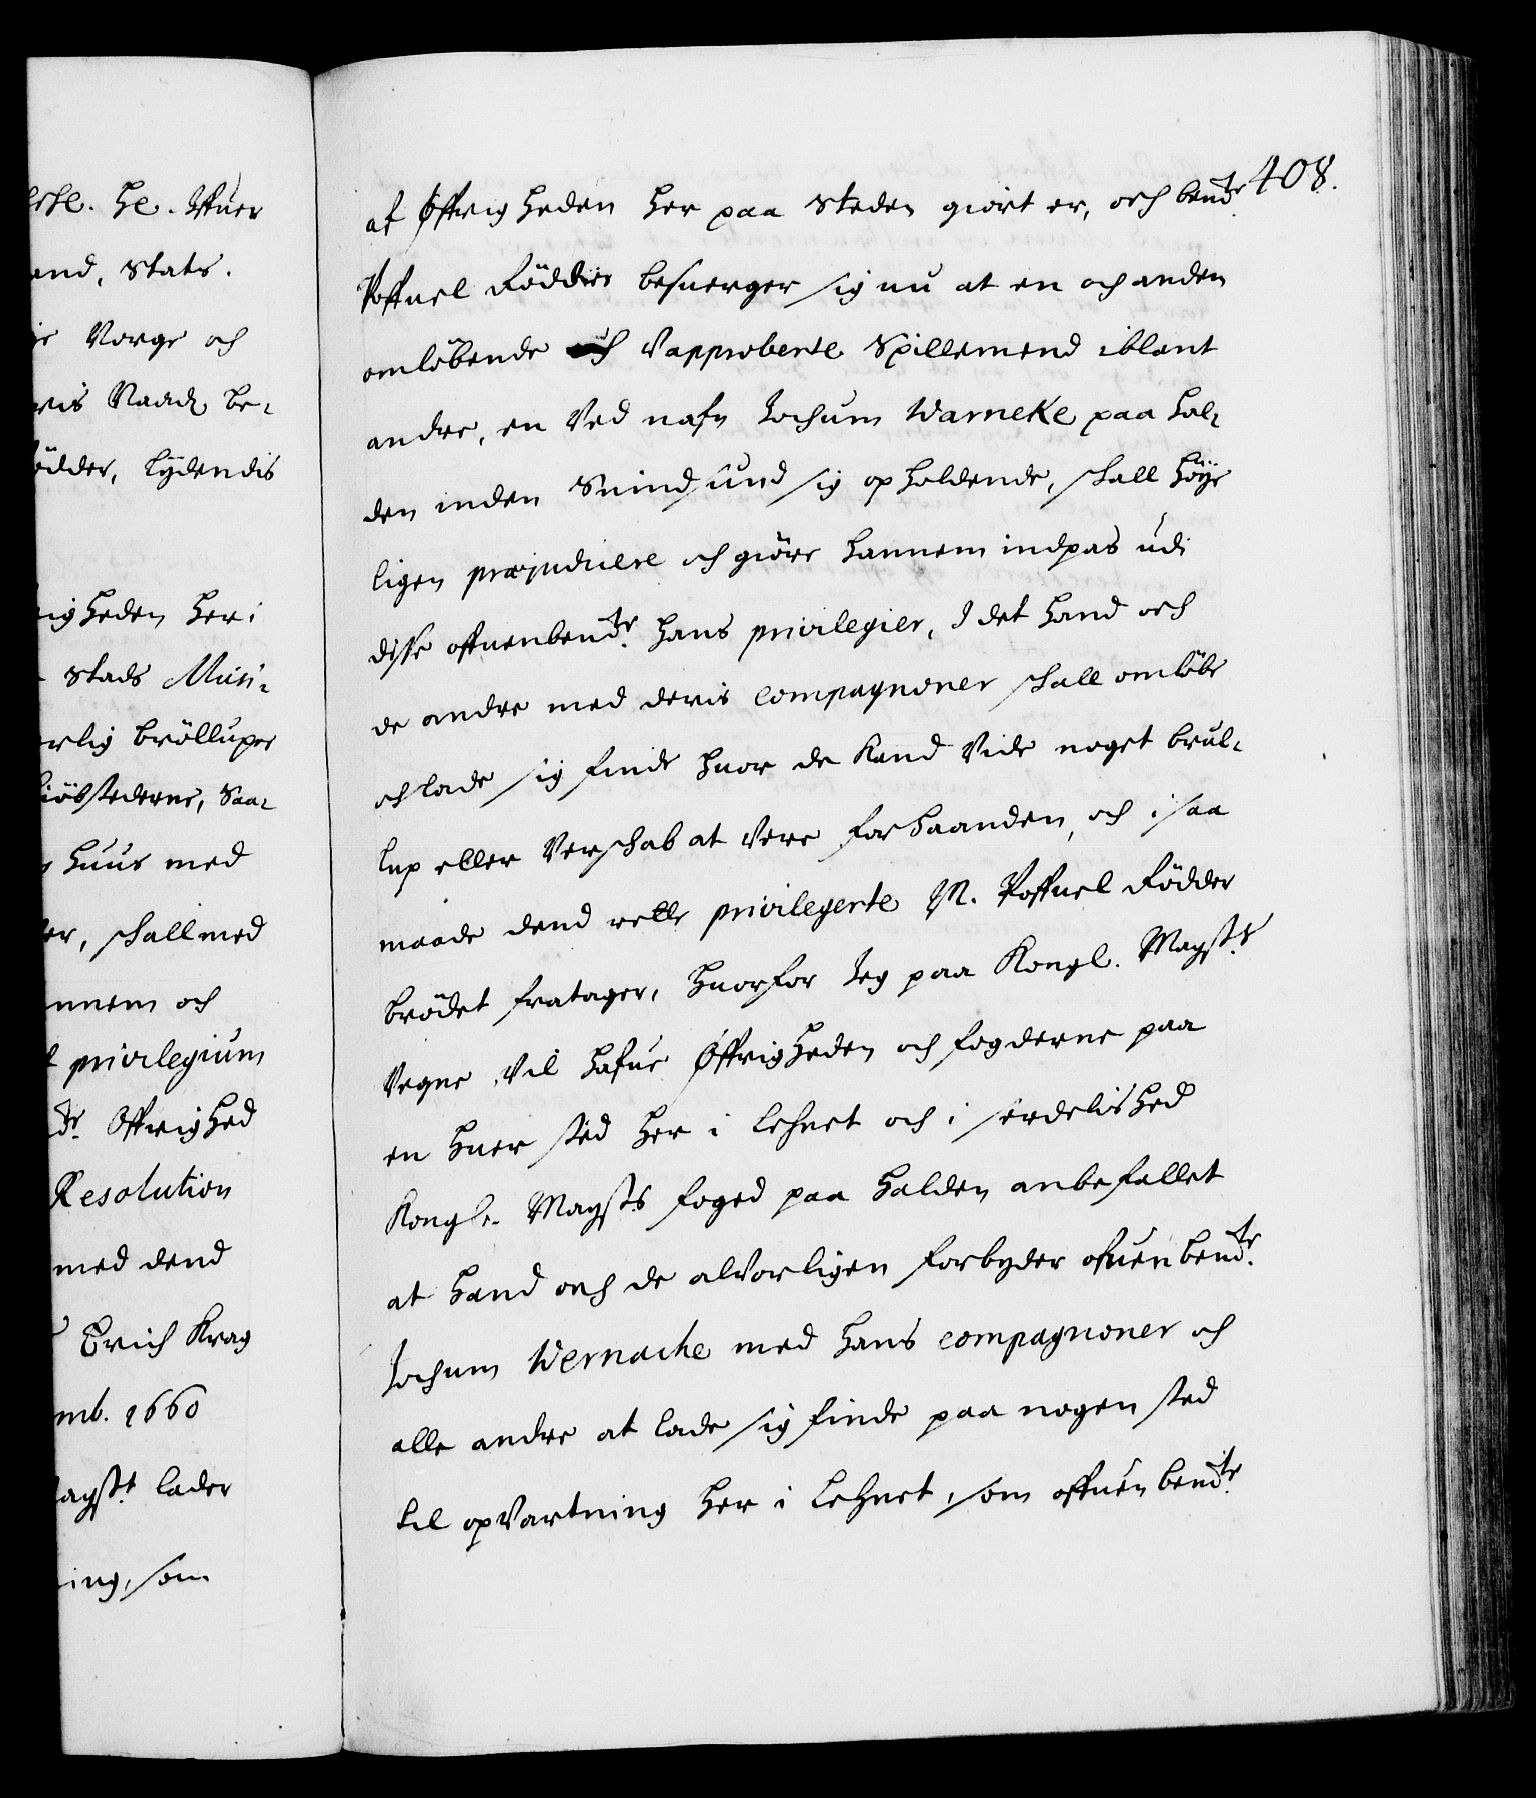 ige Norge och
eris Raads be-
ödder, lydendis
igheden her i
Stads Musi-
erlig brölluper
kiöbstederne, Saa-
huus med
er, schall med
annem och
t privilegium
dte. Offrighed
Resolution
med dend
Erich Krag
emb. 1660
Mayst. lader
ning, som
408.
af Øffrigheden her paa Steden giort er, och bemdte.
Poffuel Rödder besuerger sig nu at en och anden
omløbende och Vapproberte Spillemend iblant
andre, en Ved nafn Jochum Warneke paa Hal-
den inden Suindsund sig opholdende, schall høye
ligen præjudicere och giøre hannem indpas udi
disse offuenbemdte. hans privilegier, I det hand och
de andre med deris compagnoner schall omløbe
och lade sig finde huor de kand Vide noget brul-
lup eller Verschab at Vere forhaanden, och i saa
maade dend rette privilegerte M. Poffuel Rödder
brødet fratager, huorfor Jeg paa Kongl. Mayst.s
Vegne Vil hafue Øffrigheden och fogderne paa
en huer sted her i Lehnet och i serdelished
Kongl. Maysts foged paa Halden anbefallet
at hand och de alvorligen forbyder ofuenbemdte.
Jochum Wernache med hans compagnoner och
alle andre at lade sig finde paa nogen sted
til opvartning her i Lehnet, som offuenbemdte.